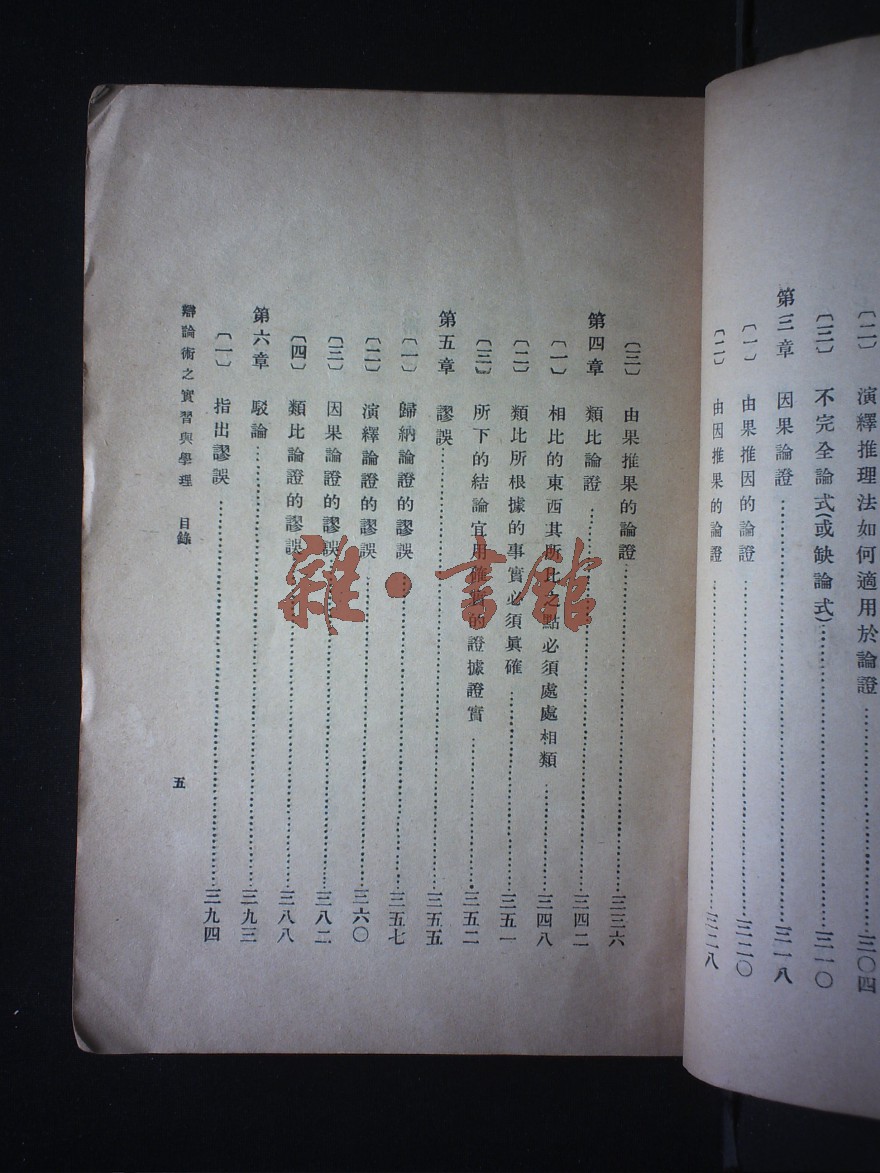 〔二〕 演繹推理法如何適用於論證……三〇四
〔三〕 不完全論式(或缺論式)……三一〇
第三章 因果論證……三一八
〔一〕 由果推因的論證……三二〇
〔二〕 由因推果的論證……三二八
〔三〕 由果推果的論證……三三六
第四章 類比論證……三四二
〔一〕 相比的東西其所比之點必須處處相類……三四八
〔二〕 類比所根據的事實必須眞確……三五一
〔三〕 所下的結論宜用確實的證據證實……三五二
第五章 謬誤……三五五
〔一〕 歸納論證的謬誤……三五七
〔二〕 演繹論證的謬誤……三六〇
〔三〕 因果論證的謬誤……三八二
〔四〕 類比論證的謬誤……三八八
第六章 駁論……三九三
〔一〕 指出謬誤……三九四
辯論術之實習與學理 目錄
五
雜·書館